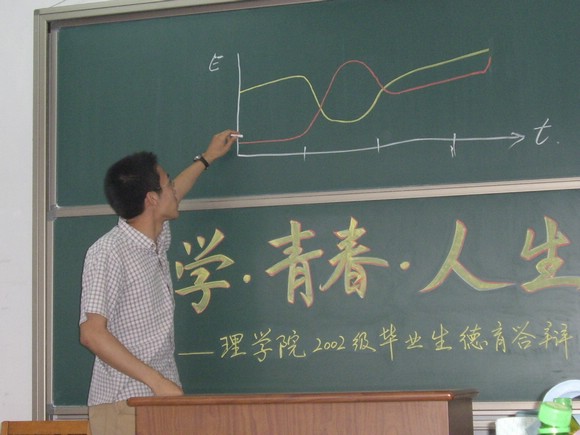 E
t.
学·青春·人生
——理学院2002级毕业生德育答辩